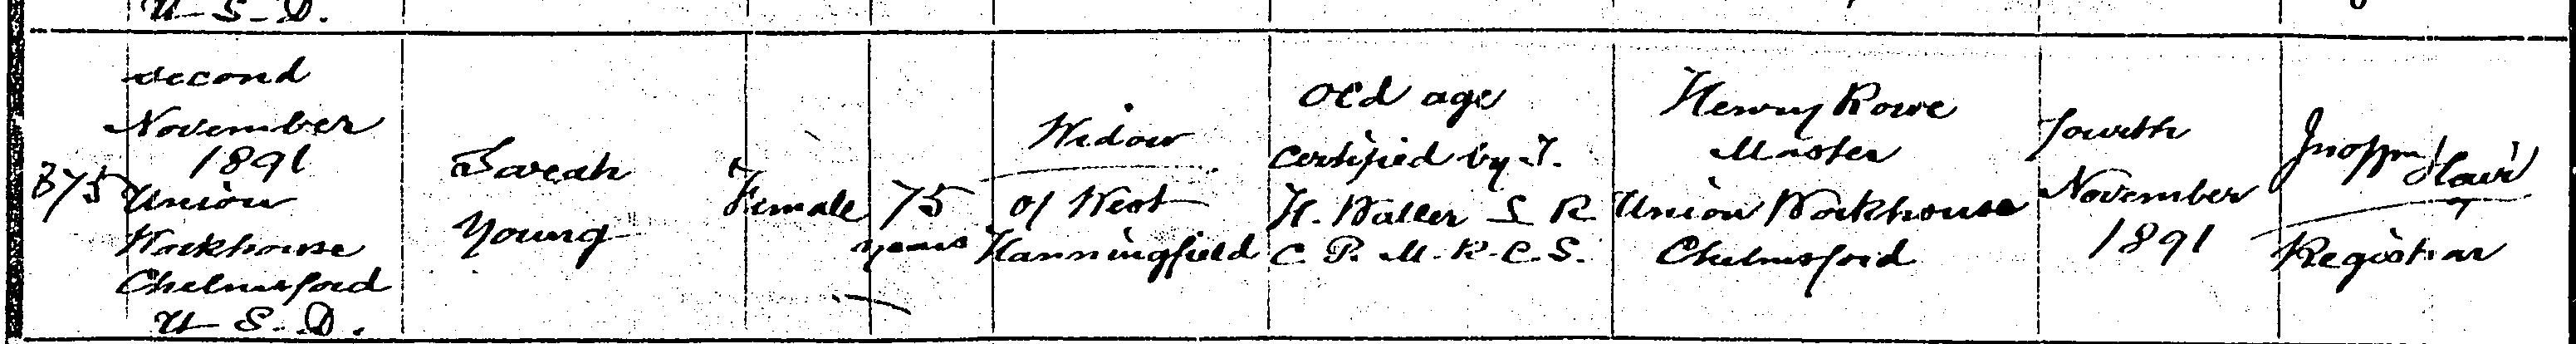 U S. D.
375
Second
November
1891
Union
Workhouse
Chelmsford
U S. D.
Sarah
Young
Female
75
years
Widow
of West
Hanningfield
Old age
Certified by T.
H. Waller L R
C. P. M. R. C. S.
Henry Rowe
Master
Union Workhouse
Chelmsford
Fourth
November
1891
Registrar